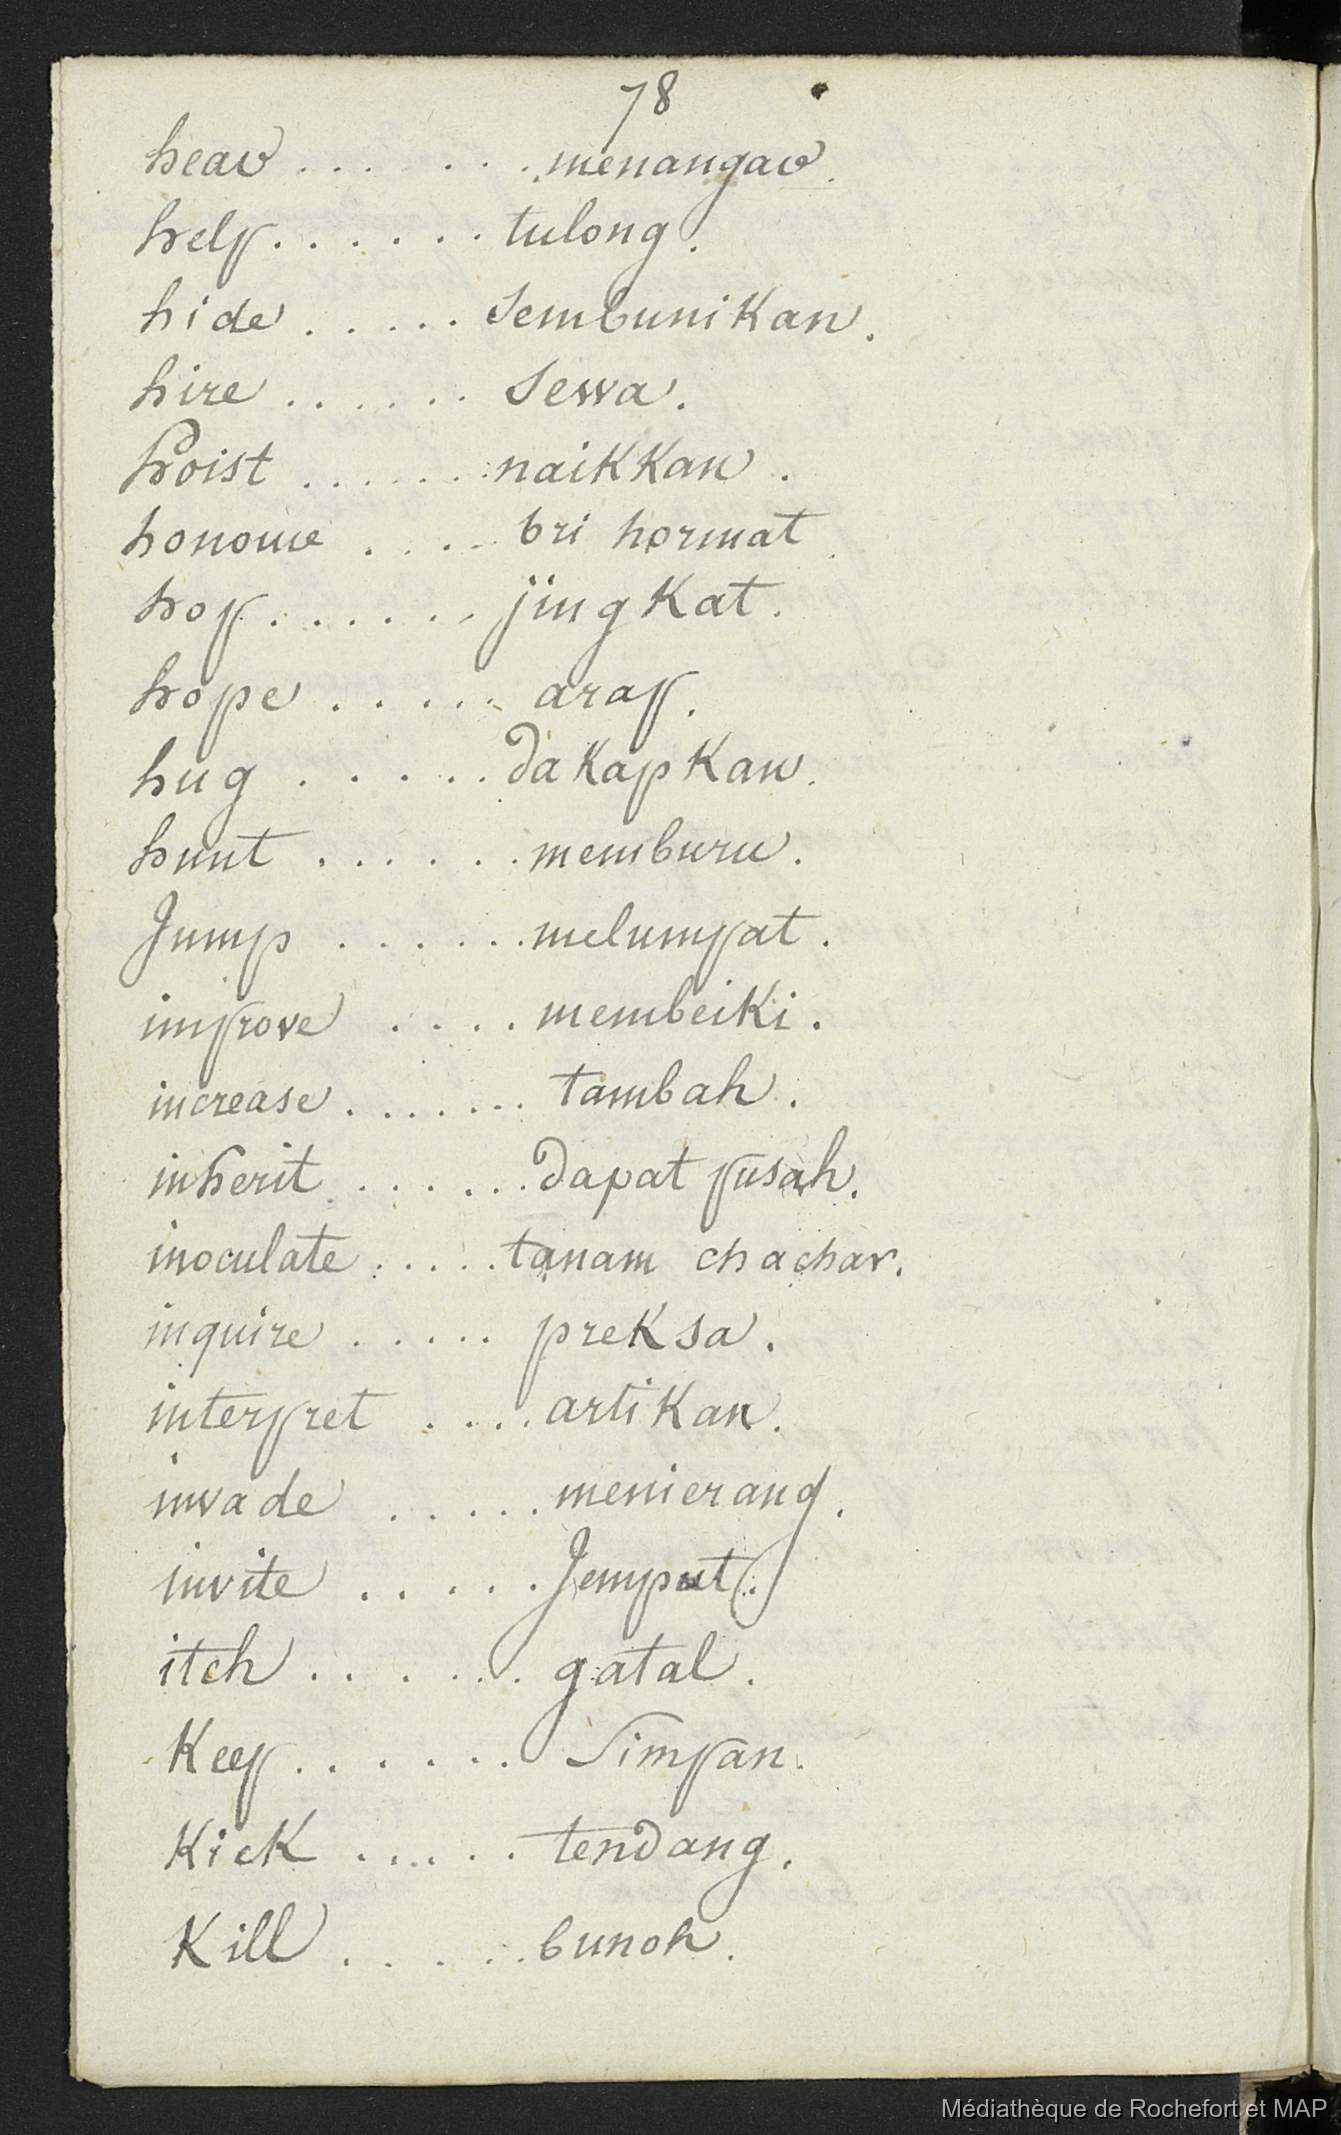 78
hear . . . . . . . menangar.
help . . . . . . tulong.
hide . . . . . Sembunikan.
hire . . . . . . Sewa.
hoist . . . . . . naikkan.
honour . . . . bri hormat.
hop . . . . . . jingkat.
hope . . . . . arap.
hug . . . . . dakapkan.
hunt . . . . . . memburu.
Jump . . . . . . melumpat.
improve . . . . membeiki.
increase . . . . . . . tambah.
inherit . . . . . . dapat pusah.
inoculate . . . . . tanam chachar.
inquire . . . . . preksa.
interpret . . . . artikan.
invade . . . . . menierang.
invite . . . . . Jemput.
itch . . . . . . gatal.
Keep . . . . . . Simpan.
Kick . . . . . . tendang.
Kill . . . . . bunoh.
Médiathèque de Rochefort et MAP